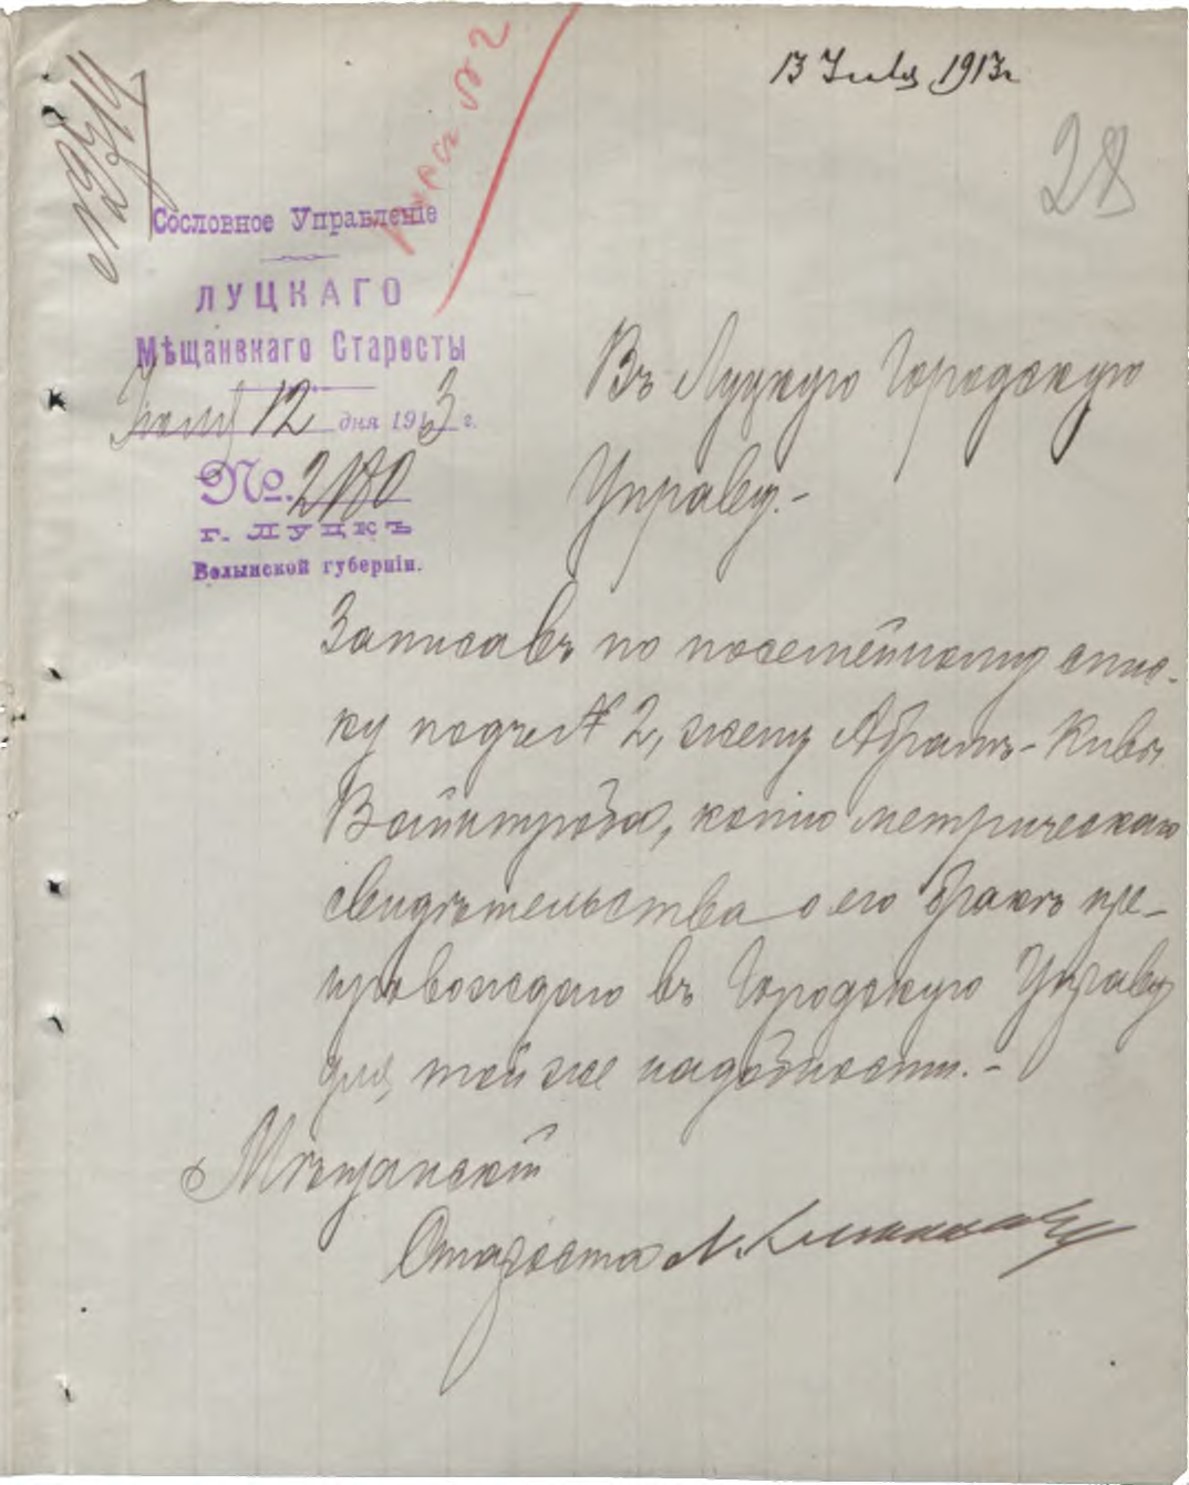 13 Июля 1913 г.
28
Сословное Управленіе
ЛУЦКАГО
Мѣщанскаго Старосты
Іюля 12 дня 1913 г.
№. 2180
г. ЛУЦКЪ
Волынской губерніи.
Въ Луцкую Городскую
Управу.-
Записавъ по посемейному спис-
ку подъ № 2, жену Абрамъ-Кивы
Вайнтроба, копію метрическаго
свидѣтельства о его бракѣ пре-
провождаю въ Городскую Управу
для той же надобности.-
Мѣщанскій
Староста